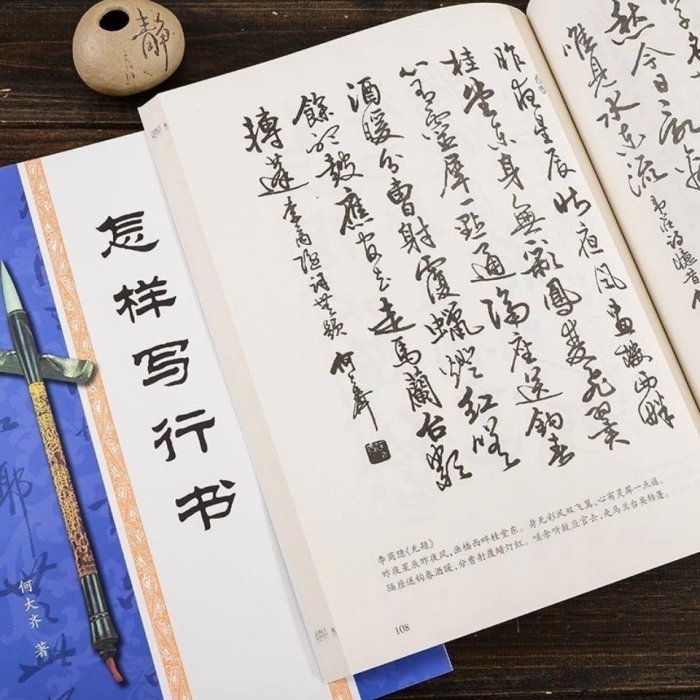 静
怎样写行书
何大齐 著
昨夜星辰昨夜風畫樓西畔
桂堂東身無彩鳳雙飛翼
心有靈犀一點通隔座送鈎春
酒暖分曹射覆蠟燈紅嗟
餘聽鼓應官去走馬蘭台類
轉蓬
李商隐詩無题
何大齊
李商隐《无题》
昨夜星辰昨夜风，画楼西畔桂堂东。身无彩凤双飞翼，心有灵犀一点通。
隔座送钩春酒暖，分曹射覆蜡灯红。嗟余听鼓应官去，走马兰台类转蓬。
108
愁今日
唯見水東流